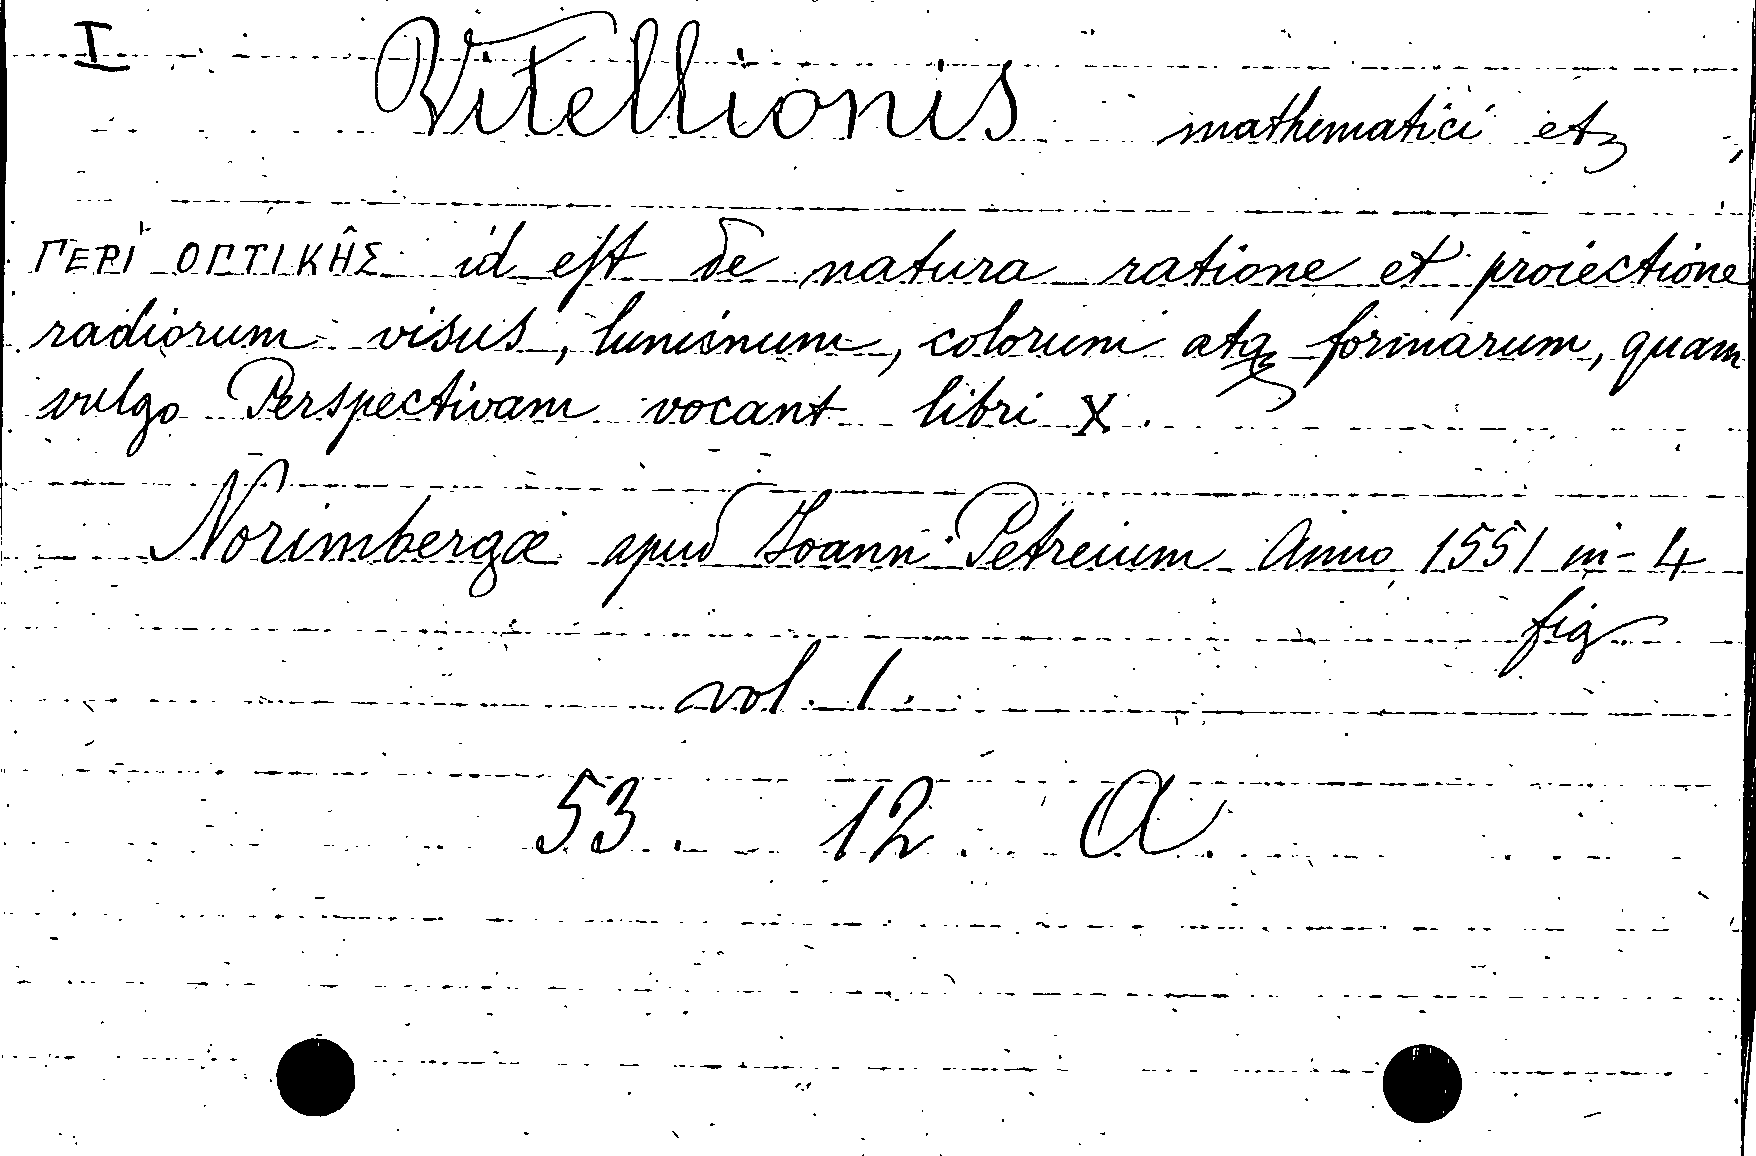 I Vitellionis mathematici etz
ΠΕΡῚ ΟΠΤΙΚΗ̂Σ id est de natura ratione et proiectione
radiorum visus, luminum, colorum atqz formarum, quam
vulgo Perspectivam vocant libri X.
Norimbergæ apud Ioann. Petreium Anno 1551 in-4
fig
vol. 1.
53. 12. A.